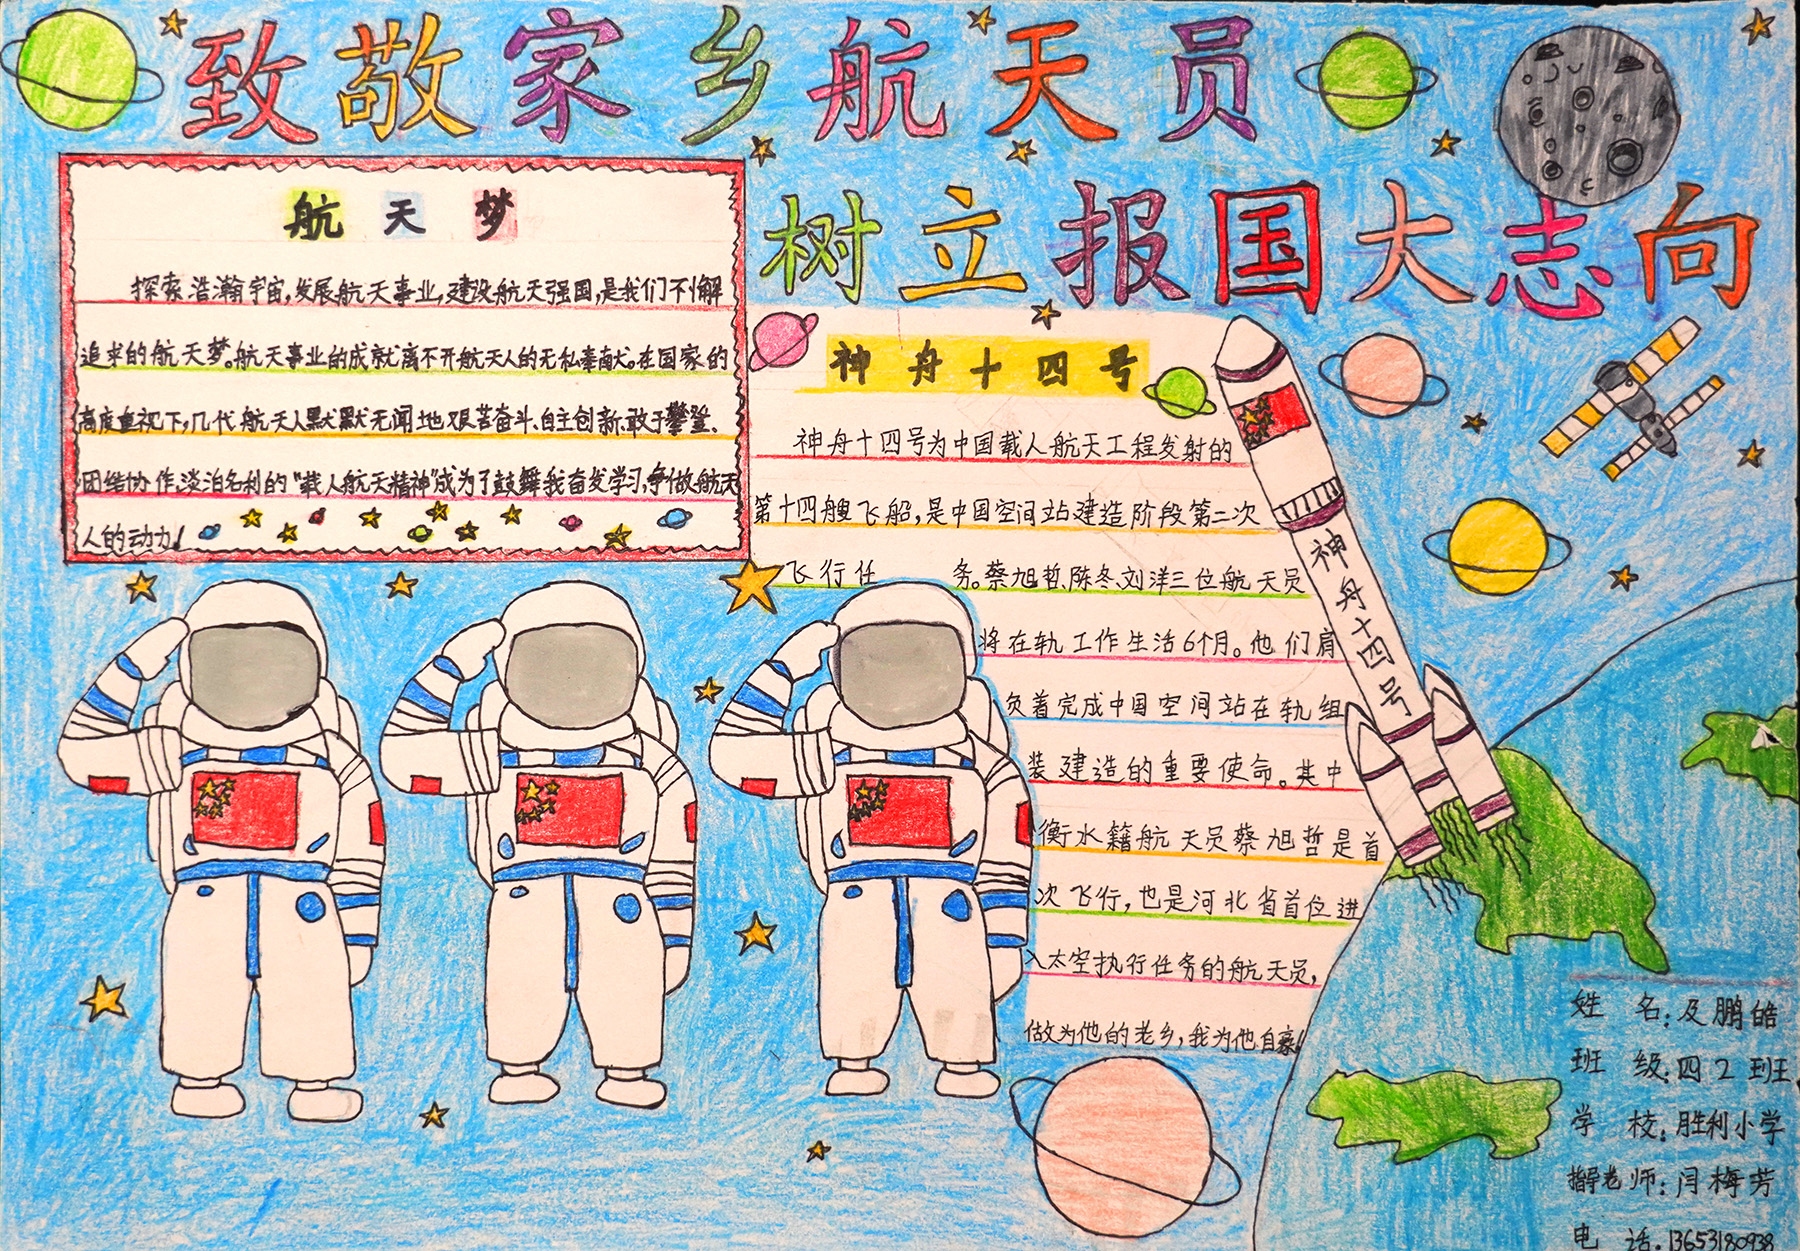 致敬家乡航天员
树立报国大志向
航天梦
探索浩瀚宇宙,发展航天事业,建设航天强国,是我们不懈
追求的航天梦。航天事业的成就离不开航天人的无私奉献。在国家的
高度重视下,几代航天人默默无闻地艰苦奋斗、自主创新、敢于攀登、
团结协作、淡泊名利的"载人航天精神"成为了鼓舞我奋发学习,争做航天
人的动力!
神舟十四号
神舟十四号为中国载人航天工程发射的
第十四艘飞船,是中国空间站建造阶段第二次
飞行任务。蔡旭哲、陈冬、刘洋三位航天员
将在轨工作生活6个月。他们肩
负着完成中国空间站在轨组
装建造的重要使命。其中
衡水籍航天员蔡旭哲是首
次飞行,也是河北省首位进
入太空执行任务的航天员,
做为他的老乡,我为他自豪!
神舟十四号
姓名:及鹏皓
班级:四2班
学校:胜利小学
指导老师:闫梅芳
电话:13653180938